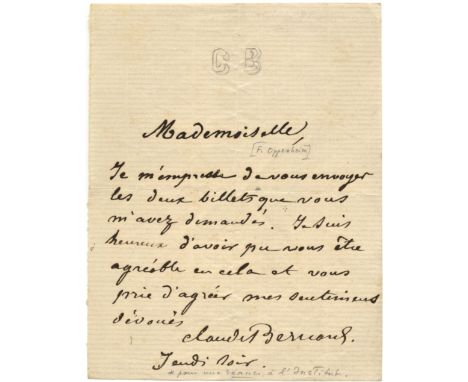 C B
Mademoiselle,
[F. Oppenheim]
Je m'empresse de vous envoyer
les deux billets que vous
m'avez demandés. Je suis
heureux d'avoir pu vous être
agréable en cela et vous
prie d'agréer mes sentiments
dévoués
Claude Bernard.
Jeudi soir.
* pour une séance à l'Institut.